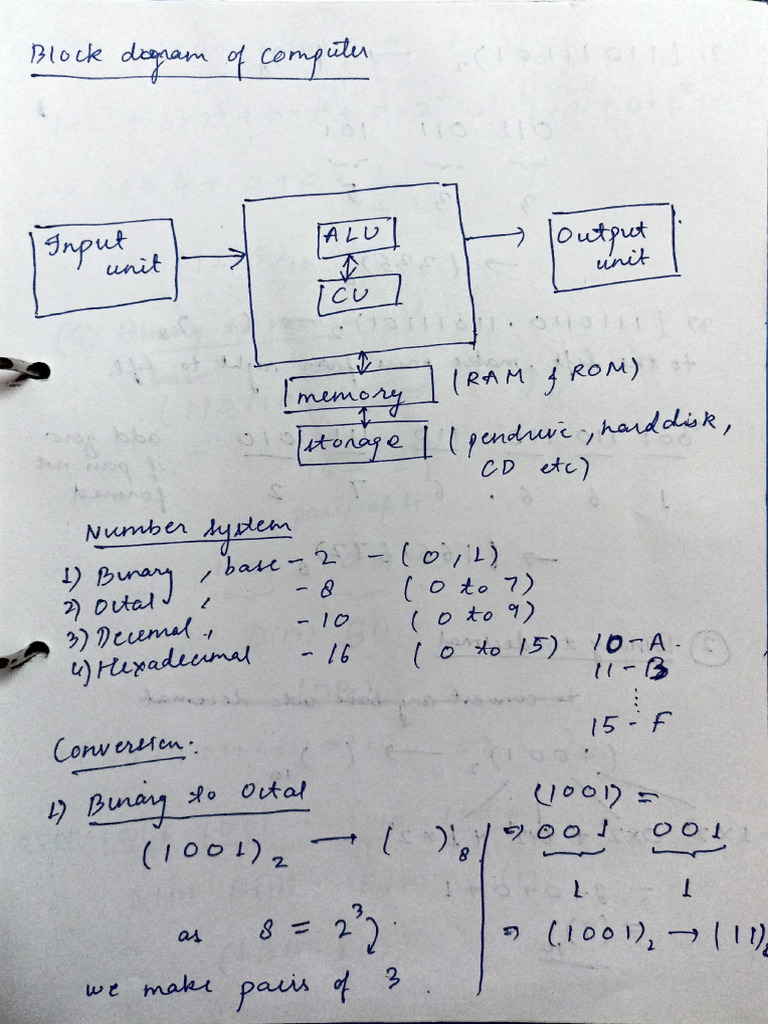 Block diagram of computer
Input unit
ALU
CU
Output unit
memory (RAM & ROM)
storage (pendrive, harddisk,
CD etc)
Number system
1) Binary, base - 2 - (0,1)
2) Octal, - 8 (0 to 7)
3) Decemal, - 10 (0 to 9)
4) Hexadecimal - 16 (0 to 15) 10 - A.
11 - B
⋮
15 - F
Conversion:
1) Binary to Octal
(1001)₂ → ( )₈
as 8 = 2³
we make pairs of 3.
(1001) =
⇒ 001 001
1 1
⇒ (1001)₂ → (11)₈